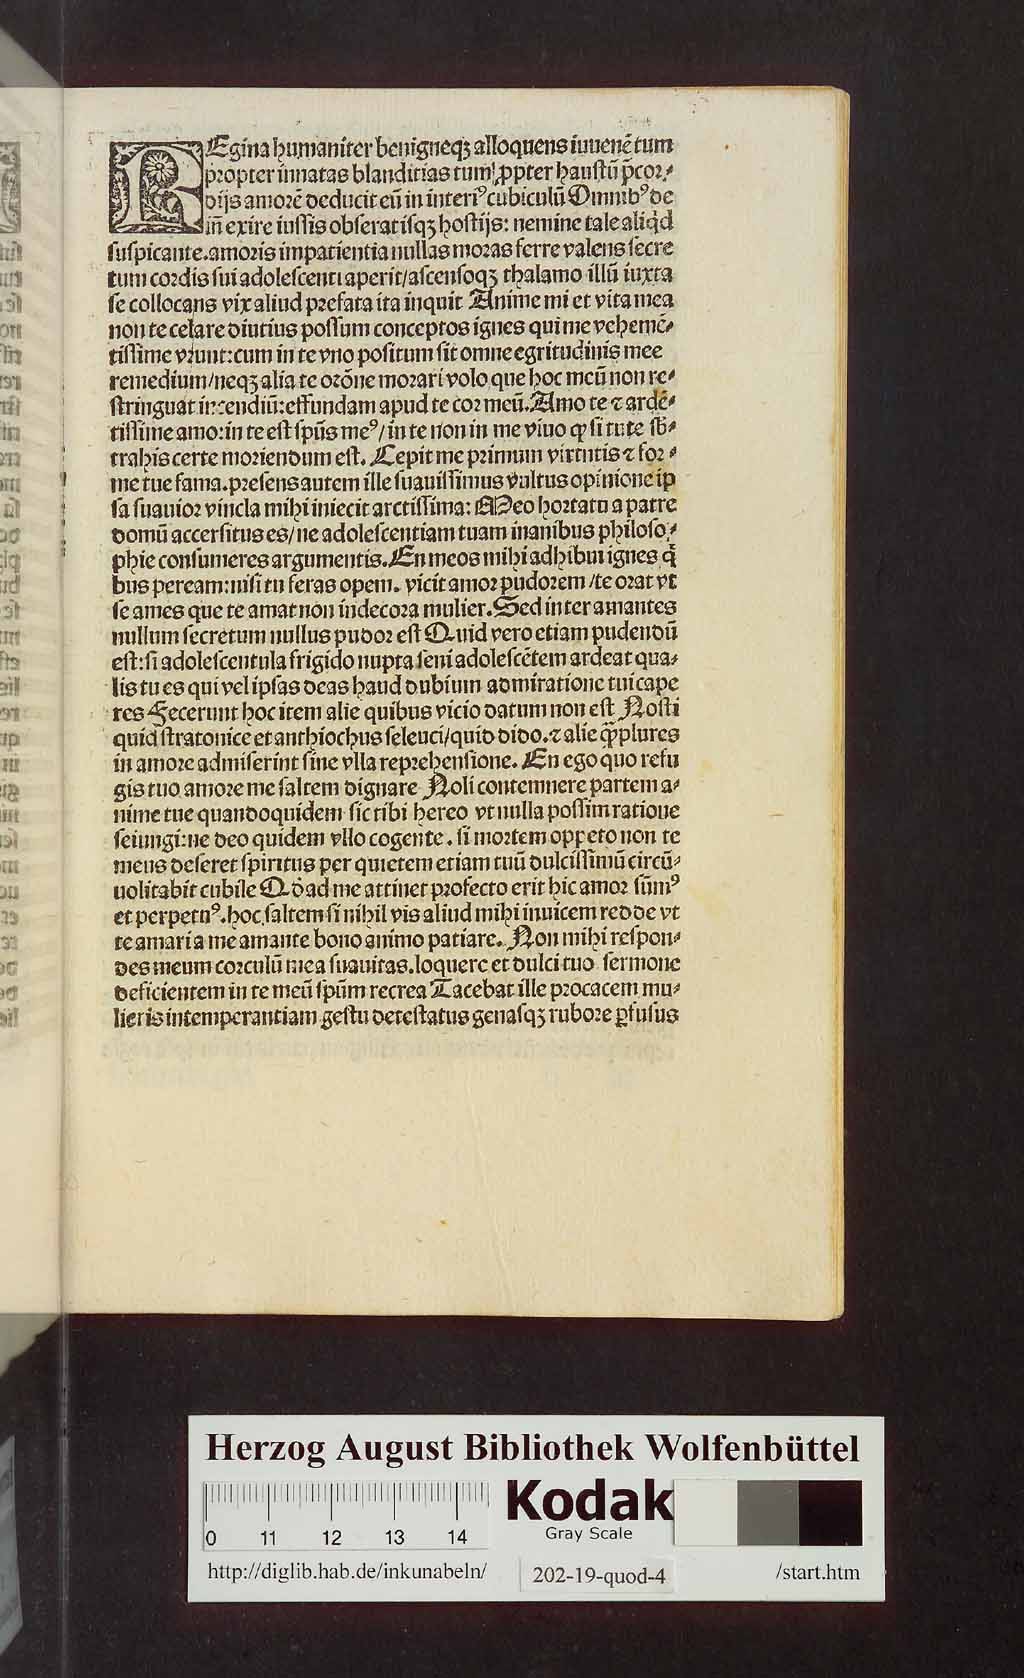 REgina humaniter benigneqꝫ alloquens iuuenē tum
propter innatas blanditias tum ꝓpter haustū p̄cor⸗
dijs amorē deducit eū in interiꝰ cubiculū Omnibꝰ de
in̄ exire iussis obseratisqꝫ hostijs: nemine tale aliqͥd
suspicante.amoris impatientia nullas moras ferre valens secre
tum cordis sui adolescenti aperit/ascensoqꝫ thalamo illū iuxta
se collocans vix aliud prefata ita inquit Anime mi et vita mea
non te celare diutius possum conceptos ignes qui me vehemē⸗
tissime vrunt:cum in te vno positum sit omne egritudinis mee
remedium/neqꝫ alia te orōne morari volo que hoc meū non re⸗
stringuat incendiū:effundam apud te cor meū.Amo te ⁊ ardē⸗
tissime amo:in te est spūs meꝰ/in te non in me viuo ꝙ si tute sb̄⸗
trahis certe moriendum est. Cepit me primum virtutis ⁊ for⸗
me tue fama.presens autem ille suauissimus vultus opinione ip
sa suauior vincla mihi iniecit arctissima: Meo hortatu a patre
domū accersitus es/ne adolescentiam tuam inanibus philoso⸗
phie consumeres argumentis. En meos mihi adhibui ignes qͥ
bus peream:nisi tu feras opem. vicit amor pudorem/te orat vt
se ames que te amat non indecora mulier.Sed inter amantes
nullum secretum nullus pudor est Quid vero etiam pudendū
est:si adolescentula frigido nupta seni adolescētem ardeat qua⸗
lis tu es qui vel ipsas deas haud dubium admiratione tui cape
res Fecerunt hoc item alie quibus vicio datum non est Nosti
quid stratonice et anthiochus seleuci/quid dido.⁊ alie qͣ̄plures
in amore admiserint sine vlla reprehensione. En ego quo refu
gis tuo amore me saltem dignare Noli contemnere partem a⸗
nime tue quandoquidem sic tibi hereo vt nulla possim ratione
seiungi:ne deo quidem vllo cogente. si mortem oppeto non te
meus deseret spiritus per quietem etiam tuū dulcissimū circū⸗
uolitabit cubile Qd̄ ad me attinet profecto erit hic amor sūmꝰ
et perpetuꝰ.hoc saltem si nihil vis aliud mihi inuicem redde vt
te amari a me amante bono animo patiare. Non mihi respon⸗
des meum corculū mea suauitas.loquere et dulci tuo sermone
deficientem in te meū spūm recrea Tacebat ille procacem mu⸗
lieris intemperantiam gestu detestatus genasqꝫ rubore ꝑfusus
Herzog August Bibliothek Wolfenbüttel
0 11 12 13 14
Kodak
Gray Scale
http://diglib.hab.de/inkunabeln/ 202-19-quod-4 /start.htm